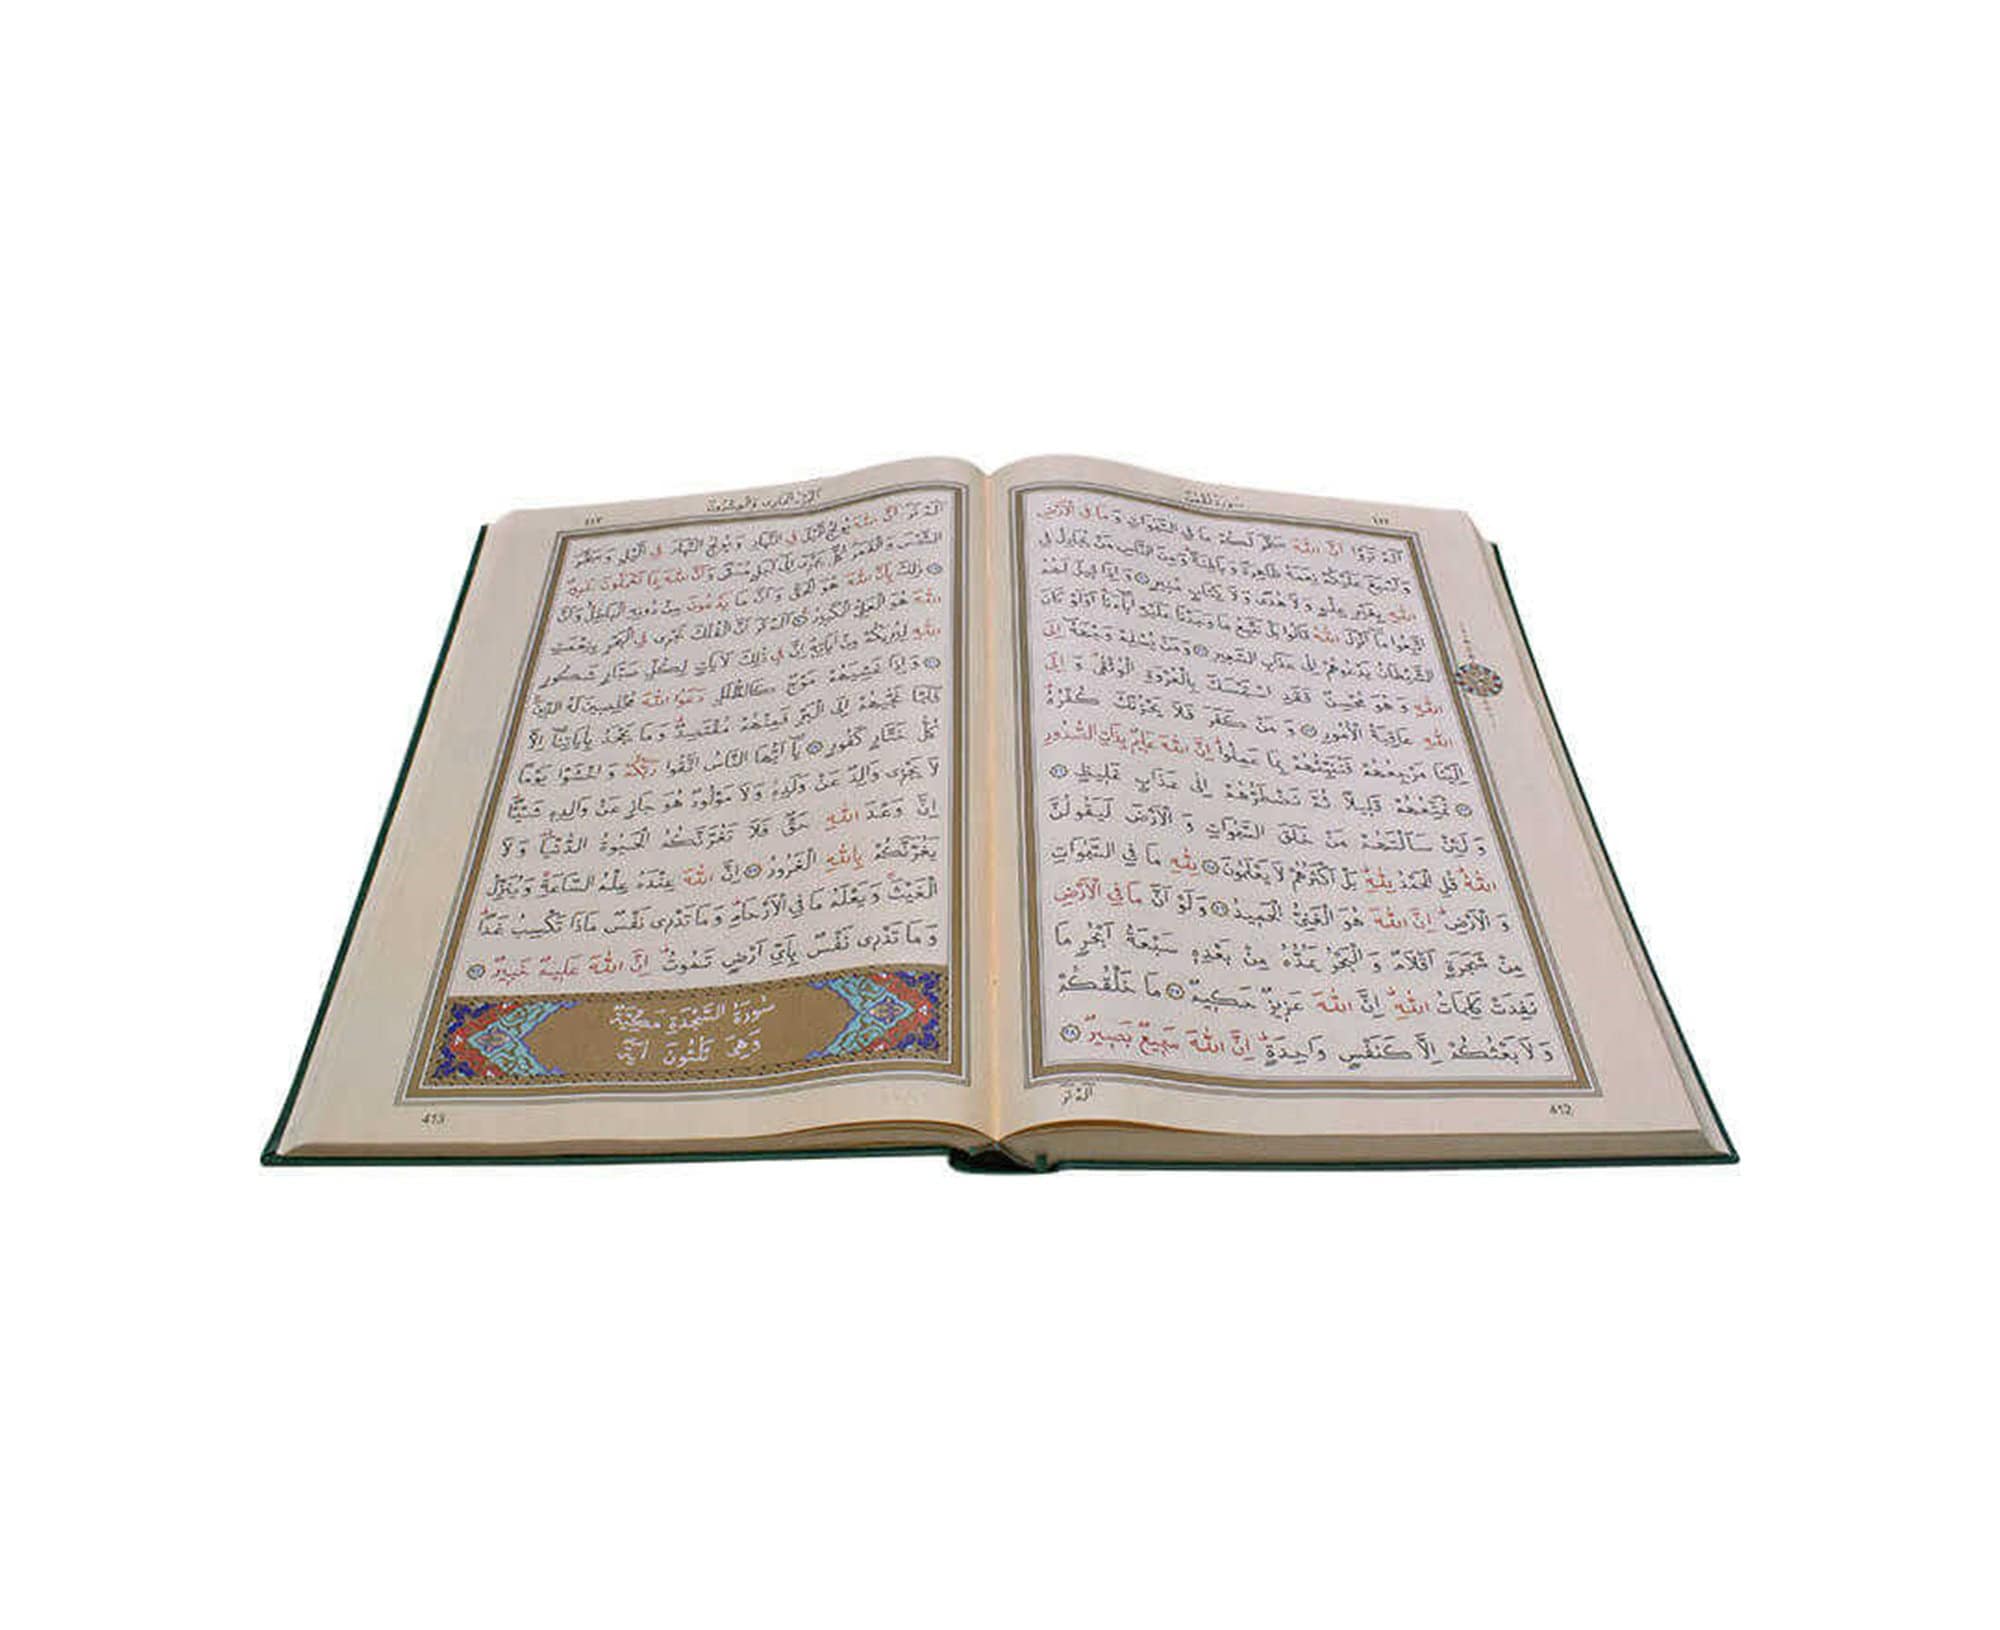 سُورَةُ لُقْمٰنَ
اَلَمْ تَرَوْا اَنَّ اللّٰهَ سَخَّرَ لَكُمْ مَا فِي السَّمٰوَاتِ وَمَا فِي الْاَرْضِ
وَاَسْبَغَ عَلَيْكُمْ نِعَمَهُ ظَاهِرَةً وَبَاطِنَةً وَمِنَ النَّاسِ مَنْ يُجَادِلُ فِي
اللّٰهِ بِغَيْرِ عِلْمٍ وَلَا هُدًى وَلَا كِتَابٍ مُنِيرٍ ٢٠ وَاِذَا قِيلَ لَهُمُ
اتَّبِعُوا مَا اَنْزَلَ اللّٰهُ قَالُوا بَلْ نَتَّبِعُ مَا وَجَدْنَا عَلَيْهِ اٰبَاءَنَا اَوَلَوْ كَانَ
الشَّيْطَانُ يَدْعُوهُمْ اِلٰى عَذَابِ السَّعِيرِ ٢١ وَمَنْ يُسْلِمْ وَجْهَهُ اِلَى
اللّٰهِ وَهُوَ مُحْسِنٌ فَقَدِ اسْتَمْسَكَ بِالْعُرْوَةِ الْوُثْقٰى وَاِلَى
اللّٰهِ عَاقِبَةُ الْاُمُورِ ٢٢ وَمَنْ كَفَرَ فَلَا يَحْزُنْكَ كُفْرُهُ
اِلَيْنَا مَرْجِعُهُمْ فَنُنَبِّئُهُمْ بِمَا عَمِلُوا اِنَّ اللّٰهَ عَلِيمٌ بِذَاتِ الصُّدُورِ
٢٣ نُمَتِّعُهُمْ قَلِيلًا ثُمَّ نَضْطَرُّهُمْ اِلٰى عَذَابٍ غَلِيظٍ ٢٤
وَلَئِنْ سَاَلْتَهُمْ مَنْ خَلَقَ السَّمٰوَاتِ وَالْاَرْضَ لَيَقُولُنَّ
اللّٰهُ قُلِ الْحَمْدُ لِلّٰهِ بَلْ اَكْثَرُهُمْ لَا يَعْلَمُونَ ٢٥ لِلّٰهِ مَا فِي السَّمٰوَاتِ
وَالْاَرْضِ اِنَّ اللّٰهَ هُوَ الْغَنِيُّ الْحَمِيدُ ٢٦ وَلَوْ اَنَّ مَا فِي الْاَرْضِ
مِنْ شَجَرَةٍ اَقْلَامٌ وَالْبَحْرُ يَمُدُّهُ مِنْ بَعْدِهِ سَبْعَةُ اَبْحُرٍ مَا
نَفِدَتْ كَلِمَاتُ اللّٰهِ اِنَّ اللّٰهَ عَزِيزٌ حَكِيمٌ ٢٧ مَا خَلْقُكُمْ
وَلَا بَعْثُكُمْ اِلَّا كَنَفْسٍ وَاحِدَةٍ اِنَّ اللّٰهَ سَمِيعٌ بَصِيرٌ ٢٨
اَلَمْ تَرَ
412
اَلْجُزْءُ الْحَادِي وَالْعِشْرُونَ
اَلَمْ تَرَ اَنَّ اللّٰهَ يُولِجُ الَّيْلَ فِي النَّهَارِ وَيُولِجُ النَّهَارَ فِي الَّيْلِ وَسَخَّرَ
الشَّمْسَ وَالْقَمَرَ كُلٌّ يَجْرِي اِلٰى اَجَلٍ مُسَمًّى وَاَنَّ اللّٰهَ بِمَا تَعْمَلُونَ خَبِيرٌ
٢٩ ذٰلِكَ بِاَنَّ اللّٰهَ هُوَ الْحَقُّ وَاَنَّ مَا يَدْعُونَ مِنْ دُونِهِ الْبَاطِلُ وَاَنَّ
اللّٰهَ هُوَ الْعَلِيُّ الْكَبِيرُ ٣٠ اَلَمْ تَرَ اَنَّ الْفُلْكَ تَجْرِي فِي الْبَحْرِ بِنِعْمَتِ
اللّٰهِ لِيُرِيَكُمْ مِنْ اٰيَاتِهِ اِنَّ فِي ذٰلِكَ لَاٰيَاتٍ لِكُلِّ صَبَّارٍ شَكُورٍ
٣١ وَاِذَا غَشِيَهُمْ مَوْجٌ كَالظُّلَلِ دَعَوُا اللّٰهَ مُخْلِصِينَ لَهُ الدِّينَ
فَلَمَّا نَجّٰيهُمْ اِلَى الْبَرِّ فَمِنْهُمْ مُقْتَصِدٌ وَمَا يَجْحَدُ بِاٰيَاتِنَا اِلَّا
كُلُّ خَتَّارٍ كَفُورٍ ٣٢ يَا اَيُّهَا النَّاسُ اتَّقُوا رَبَّكُمْ وَاخْشَوْا يَوْمًا
لَا يَجْزِي وَالِدٌ عَنْ وَلَدِهِ وَلَا مَوْلُودٌ هُوَ جَازٍ عَنْ وَالِدِهِ شَيْئًا
اِنَّ وَعْدَ اللّٰهِ حَقٌّ فَلَا تَغُرَّنَّكُمُ الْحَيٰوةُ الدُّنْيَا وَلَا
يَغُرَّنَّكُمْ بِاللّٰهِ الْغَرُورُ ٣٣ اِنَّ اللّٰهَ عِنْدَهُ عِلْمُ السَّاعَةِ وَيُنَزِّلُ
الْغَيْثَ وَيَعْلَمُ مَا فِي الْاَرْحَامِ وَمَا تَدْرِي نَفْسٌ مَاذَا تَكْسِبُ غَدًا
وَمَا تَدْرِي نَفْسٌ بِاَيِّ اَرْضٍ تَمُوتُ اِنَّ اللّٰهَ عَلِيمٌ خَبِيرٌ ٣٤
سُورَةُ السَّجْدَةِ مَكِّيَّةٌ
وَهِيَ ثَلٰثُونَ اٰيَةً
413